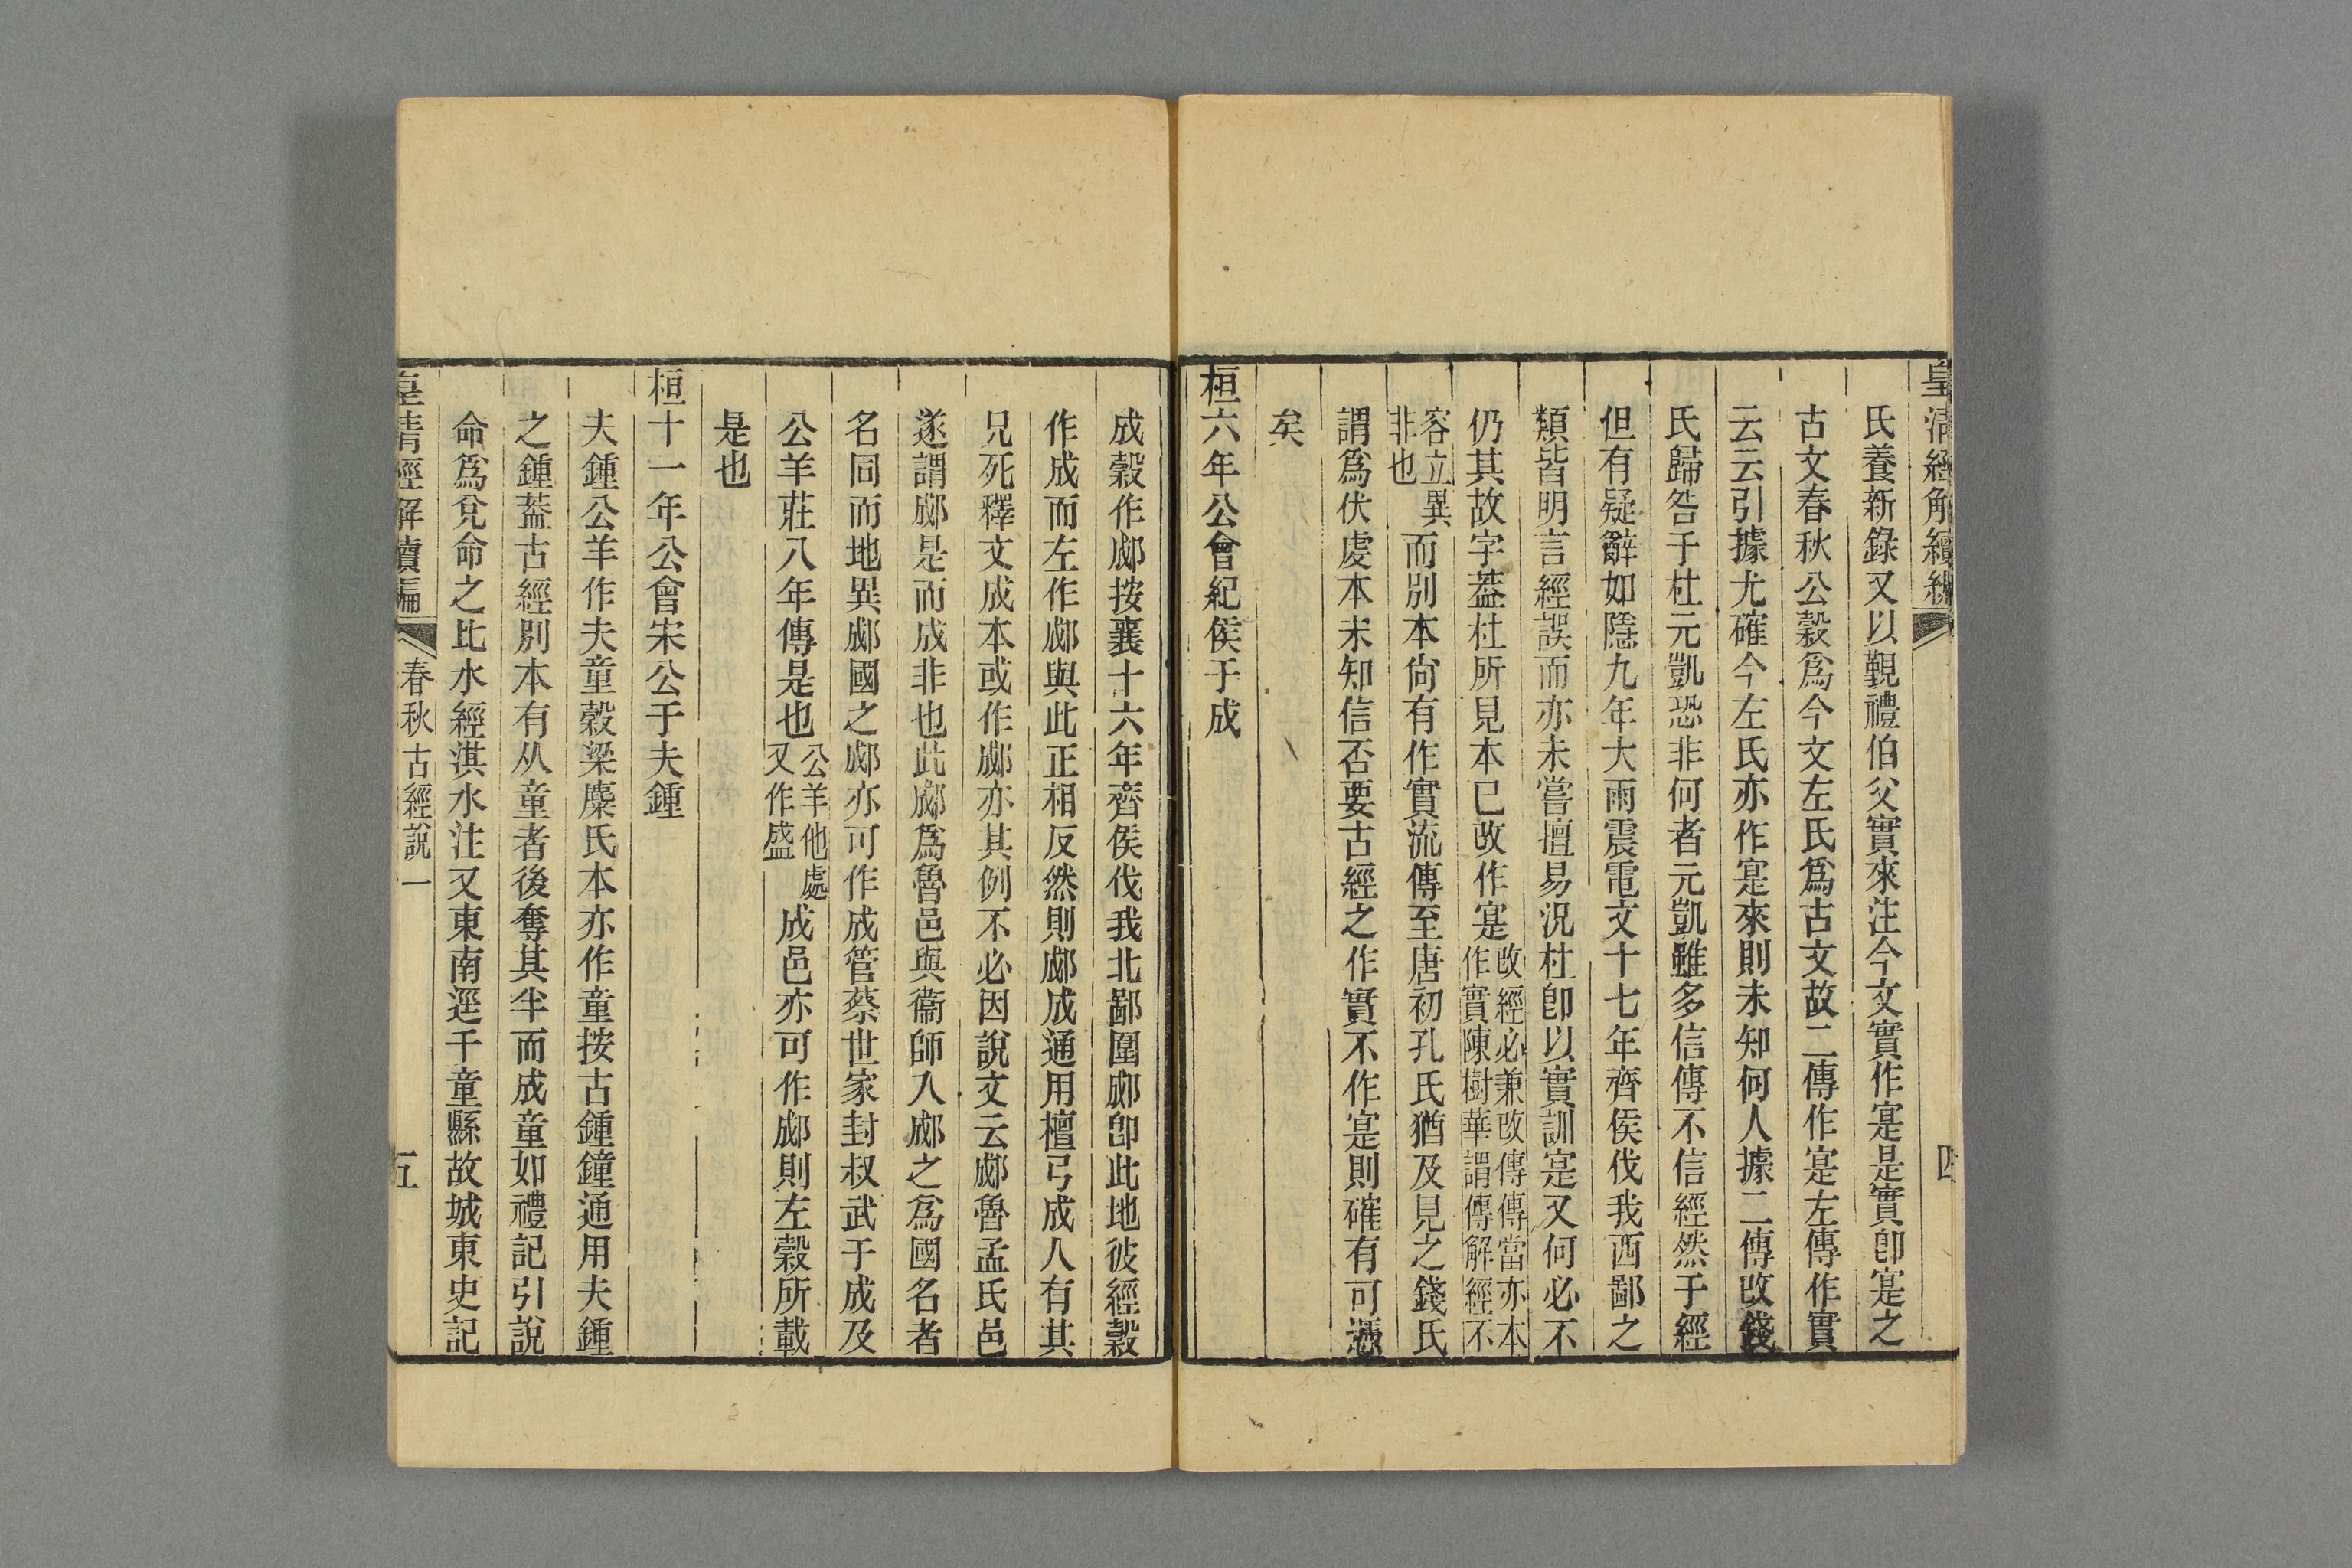 皇清經解續編
四
氏養新錄又以觀禮伯父實來注今文實作寔是實卽寔之
古文春秋公穀爲今文左氏爲古文故二傳作寔左傳作實
云云引據尤確今左氏亦作寔來則未知何人據二傳改錢
氏歸咎于杜元凱恐非何者元凱雖多信傳不信經然于經
但有疑辭如隱九年大雨震電文十七年齊侯伐我西鄙之
類皆明言經誤而亦未嘗擅易況杜卽以實訓寔又何必不
仍其故字葢杜所見本已改作寔改經必兼改傳傳當亦本作實陳樹華謂傳解經不
容立異非也而別本尙有作實流傳至唐初孔氏猶及見之錢氏
謂爲伏虔本未知信否要古經之作實不作寔則確有可憑
矣
桓六年公會紀侯于成
成穀作郕按襄十六年齊侯伐我北鄙圍郕卽此地彼經穀
作成而左作郕與此正相反然則郕成通用檀弓成人有其
兄死釋文成本或作郕亦其例不必因說文云郕魯孟氏邑
遂謂郕是而成非也此郕爲魯邑與衞師入郕之爲國名者
名同而地異郕國之郕亦可作成管蔡世家封叔武于成及
公羊莊八年傳是也公羊他處又作盛成邑亦可作郕則左穀所載
是也
桓十一年公會宋公于夫鍾
夫鍾公羊作夫童穀梁麋氏本亦作童按古鍾鐘通用夫鍾
之鍾葢古經別本有从童者後奪其半而成童如禮記引說
命爲兌命之比水經淇水注又東南逕千童縣故城東史記
皇清經解續編
春秋古經說一
五